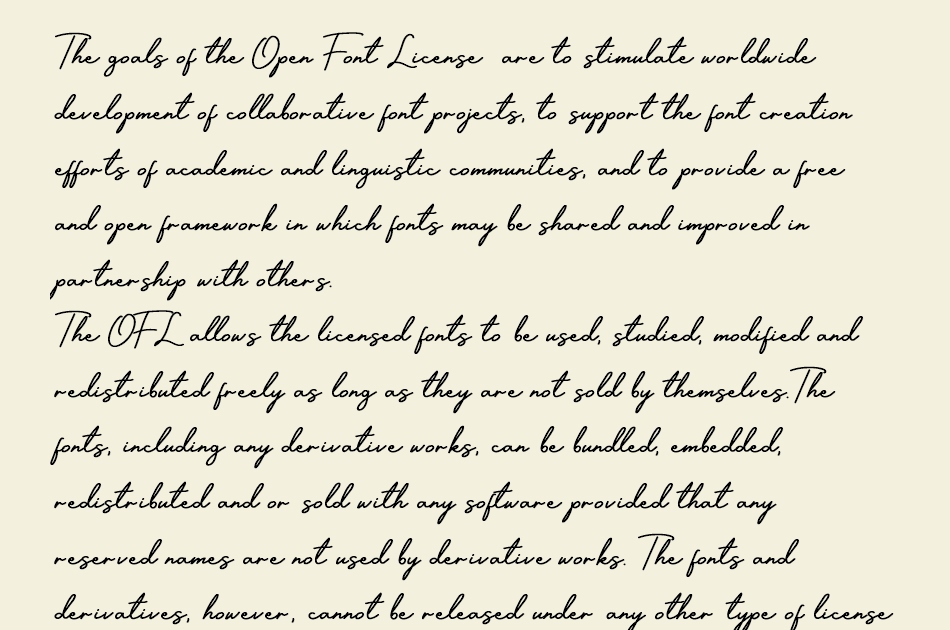 The goals of the Open Font License are to stimulate worldwide
development of collaborative font projects, to support the font creation
efforts of academic and linguistic communities, and to provide a free
and open framework in which fonts may be shared and improved in
partnership with others.
The OFL allows the licensed fonts to be used, studied, modified and
redistributed freely as long as they are not sold by themselves.The
fonts, including any derivative works, can be bundled, embedded,
redistributed and or sold with any software provided that any
reserved names are not used by derivative works. The fonts and
derivatives, however, cannot be released under any other type of license